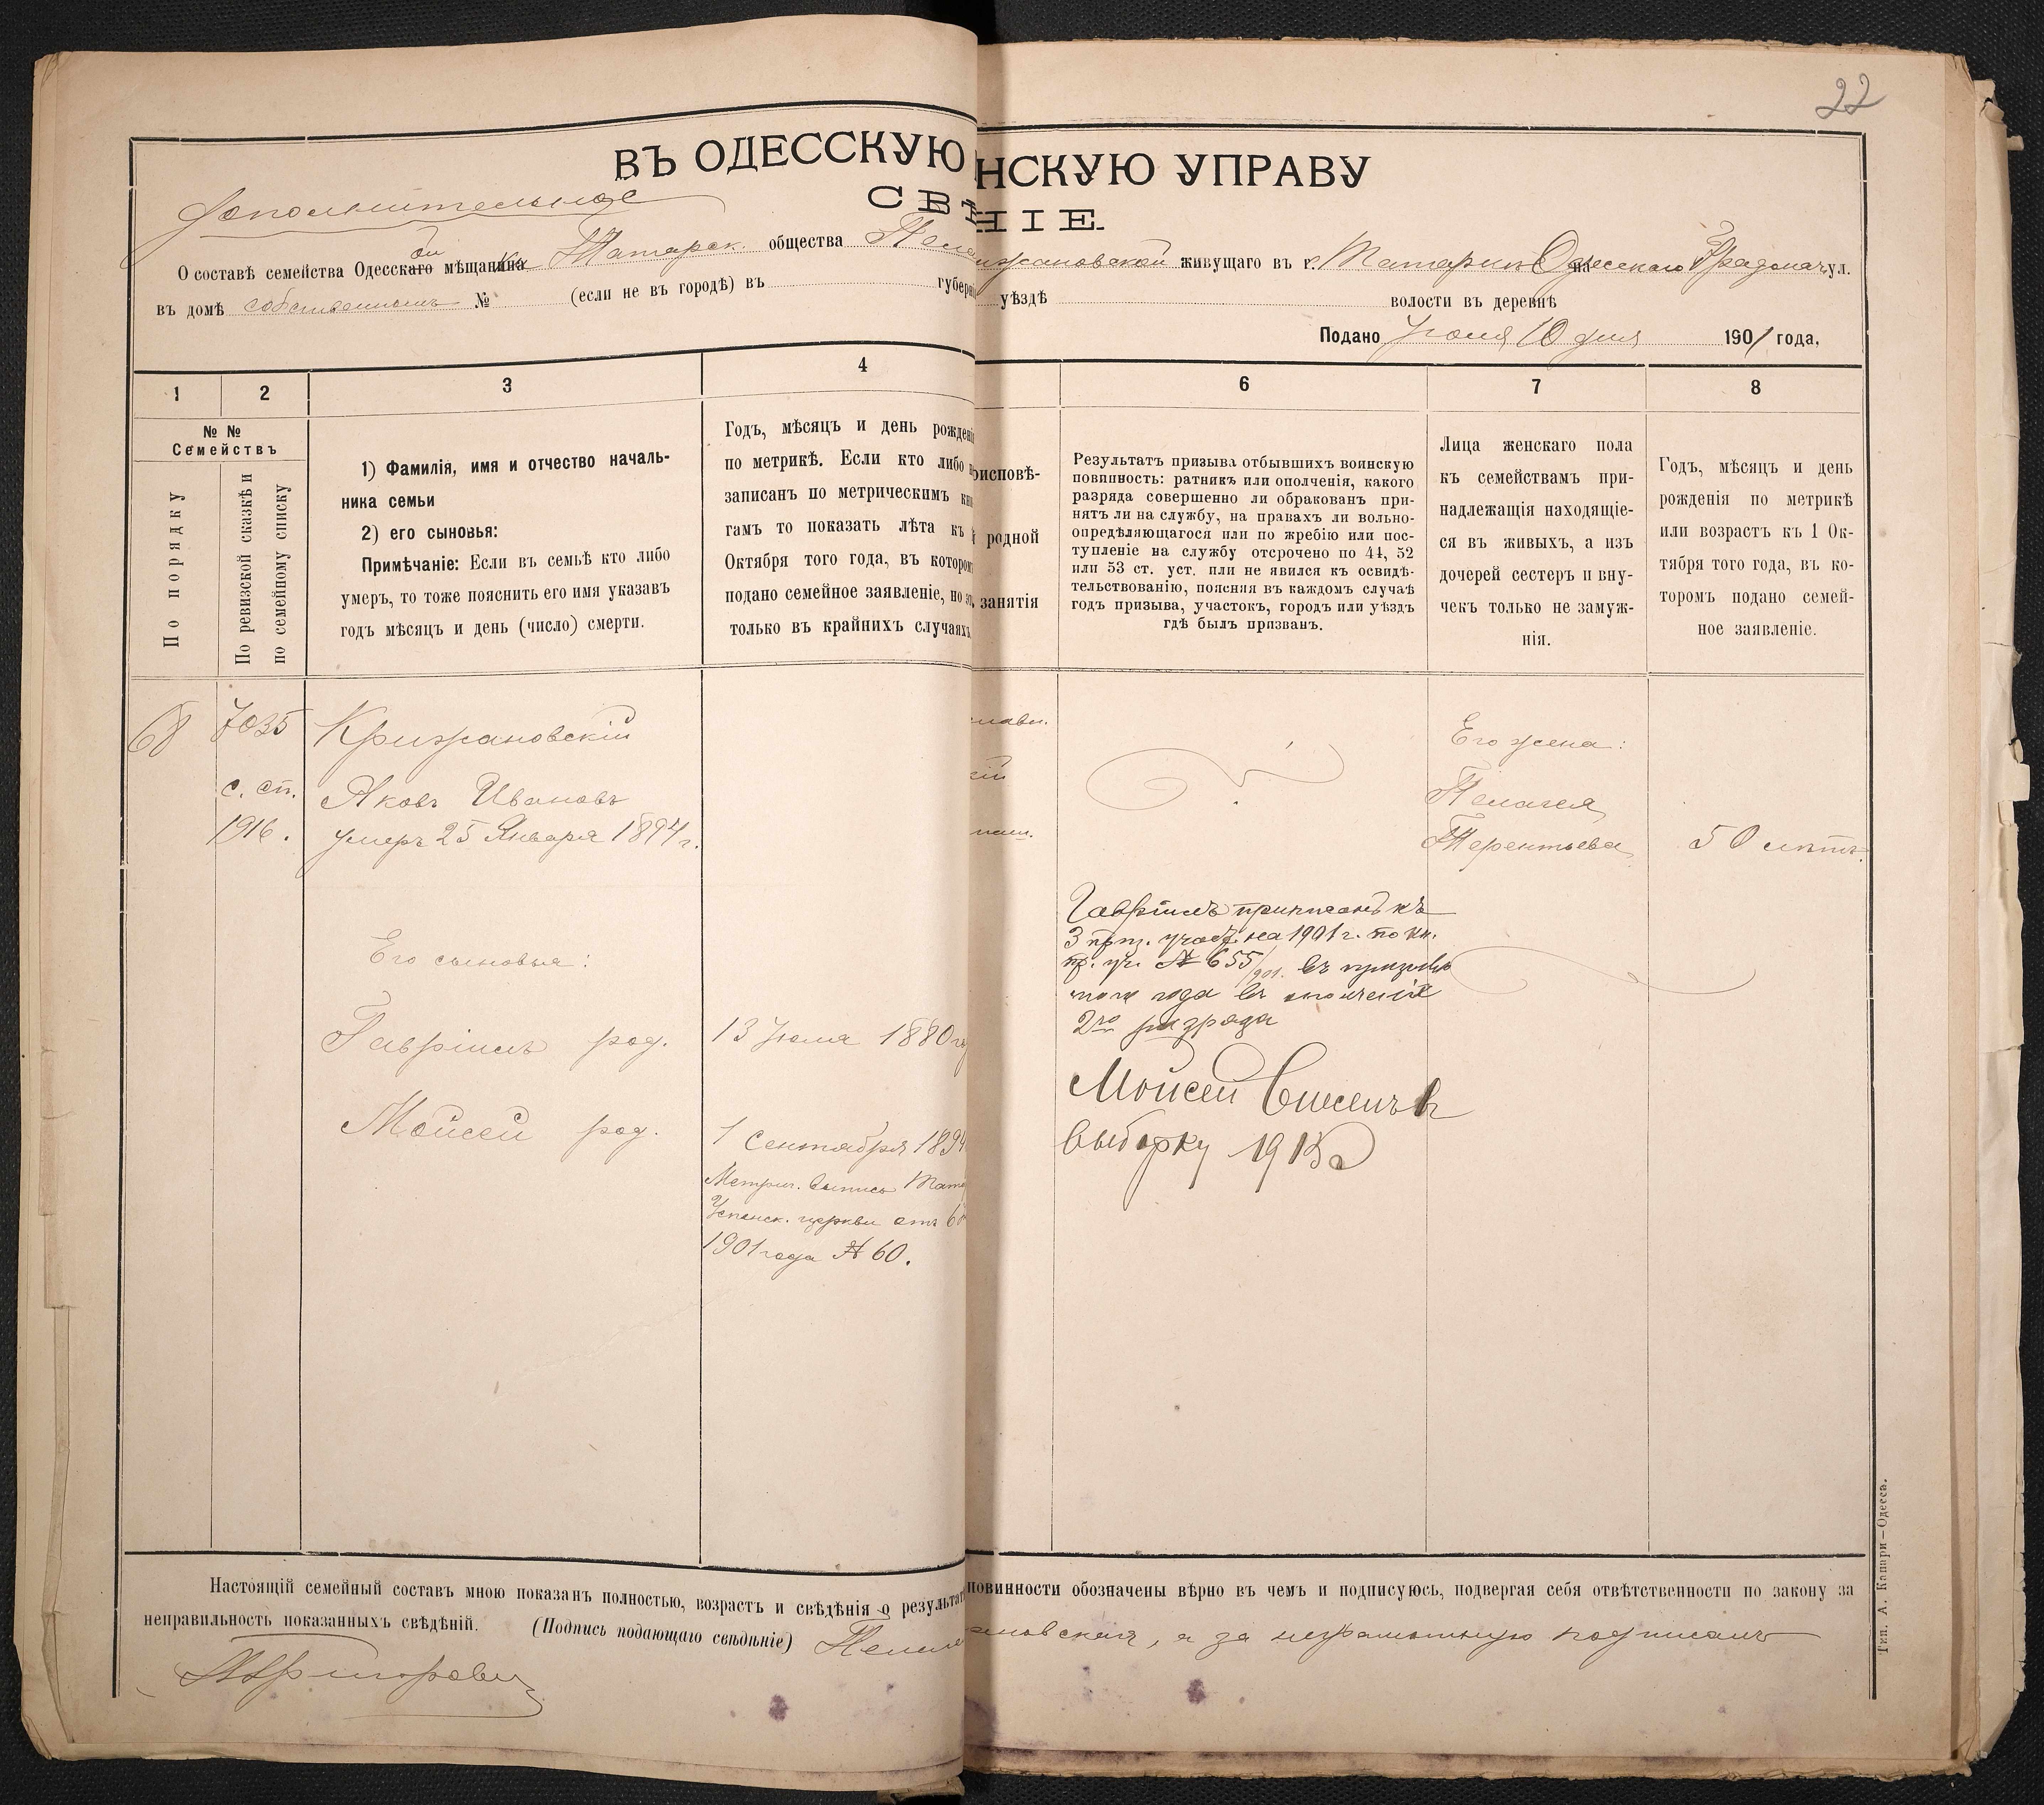 22
ВЪ ОДЕССКУЮ НСКУЮ УПРАВУ
Дополнительное
СВѢ НІЕ.
О составѣ семейства Одесскаго мѣщанина ки Татарск. общества Пела ижановской живущаго въ г. Татарки Одесскаго Градонач ул.
въ домѣ собственномъ № (если не въ городѣ) въ губерніи уѣздѣ волости въ деревнѣ
Подано Іюня 10 дня 1901 года.
1 2 3 4 6 7 8
№ №
Семействъ
По порядку
По ревизской сказкѣ и
по семейному списку
1) Фамилія, имя и отчество началь-
ника семьи
2) его сыновья:
Примѣчаніе: Если въ семьѣ кто либо
умеръ, то тоже пояснить его имя указавъ
годъ мѣсяцъ и день (число) смерти.
Годъ, мѣсяцъ и день рожденія
по метрикѣ. Если кто либо не
записанъ по метрическимъ кни
гамъ то показать лѣта къ
Октября того года, въ котором
подано семейное заявленіе, но
только въ крайнихъ случаяхъ
оисповѣ-
родной
занятія
Результатъ призыва отбывшихъ воинскую
повинность: ратникъ или ополченія, какого
разряда совершенно ли обракованъ при-
нятъ ли на службу, на правахъ ли вольно-
опредѣляющагося или по жребію или пос-
тупленіе на службу отсрочено по 44, 52
или 53 ст. уст. или не явился къ освидѣ-
тельствованію, поясняя въ каждомъ случаѣ
годъ призыва, участокъ, городъ или уѣздъ
гдѣ былъ призванъ.
Лица женскаго пола
къ семействамъ при-
надлежащія находящіе-
ся въ живыхъ, а изъ
дочерей сестеръ и вну-
чекъ только не замуж-
нія.
Годъ, мѣсяцъ и день
рожденія по метрикѣ
или возрастъ къ 1 Ок-
тября того года, въ ко-
торомъ подано семей-
ное заявленіе.
68 7035 Крижановскій
с. сп. Яковъ Ивановъ
1916. умеръ 25 Января 1894 г.
Его сыновья:
Гавріилъ род. 13 Іюля 1880 г
Мойсей род. 1 Сентября 1894
Метрич. выпись Тата
Успенск. церкви отъ 6
1901 года № 60.
слави.
кій
Его жена:
Пелагея
Терентьева 50 лѣтъ.
Гавріилъ приписанъ къ
3 приз. участ. на 1901 г. по кн.
пр. уч. № 655/901. въ призывъ
того года въ ополченіе
2го разряда
Мойсей Внесенъ в
выборку 1915 г
Настоящій семейный составъ мною показанъ полностью, возрастъ и свѣдѣнія о результат повинности обозначены вѣрно въ чемъ и подписуюсь, подвергая себя отвѣтственности по закону за
неправильность показанныхъ свѣдѣній. (Подпись подающаго свѣдѣніе) Пела ановская, а за неграмотную подписалъ
Тип. А. Капари — Одесса.